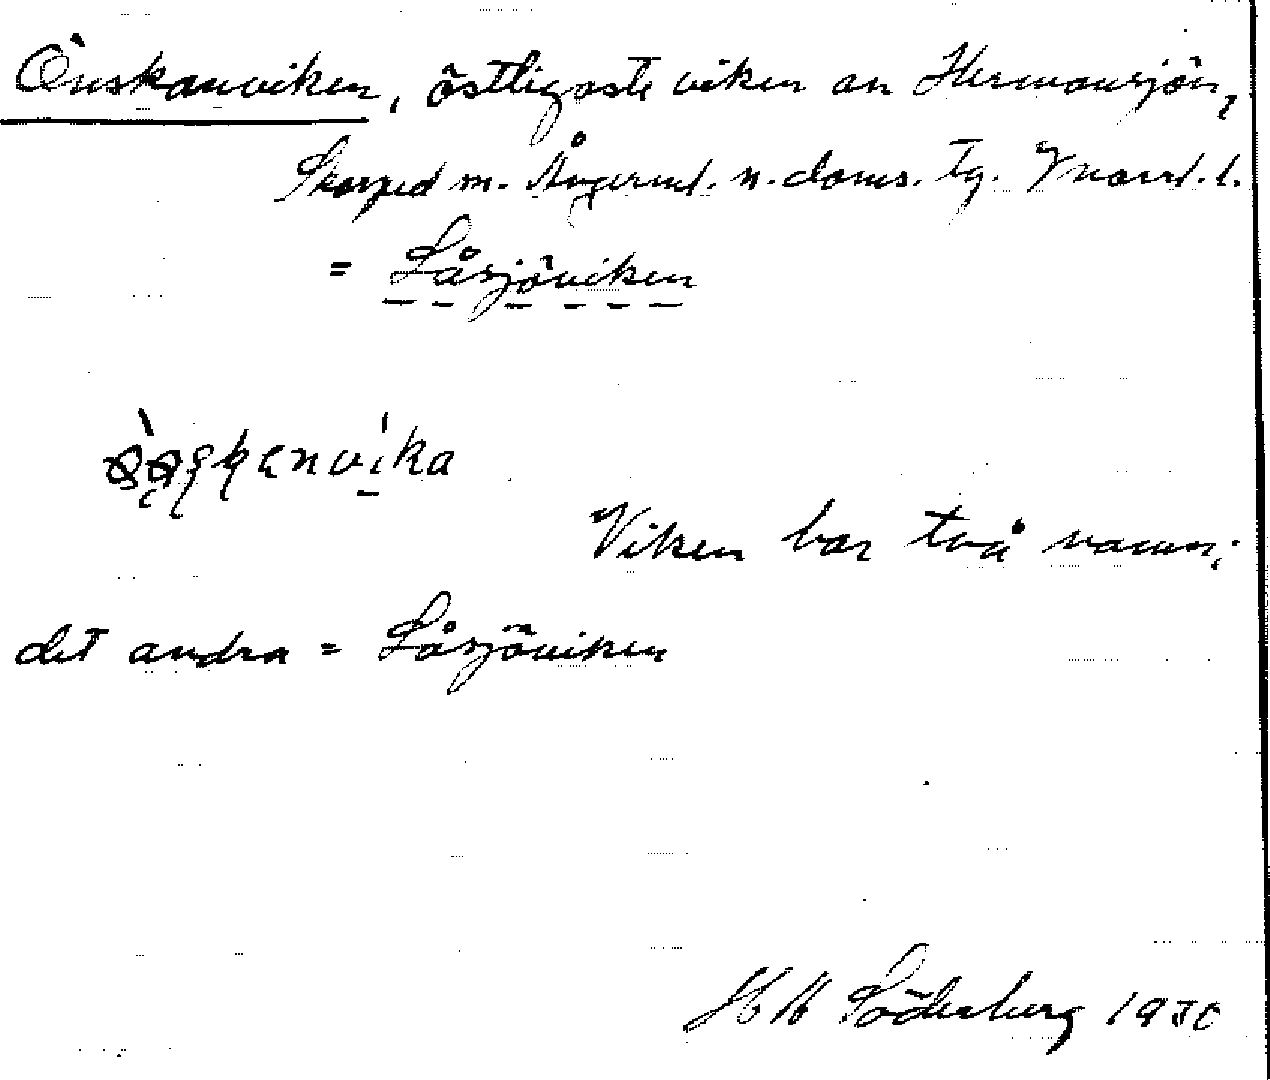 Önskanviken, östligaste viken an Hermansjön,
Skorped sn. Ångerml. n. doms. tg. Vnorrl. l.
= Låsjöviken
Viken har två namn;
det andra = Låsjöviken
HM Söderberg 1930